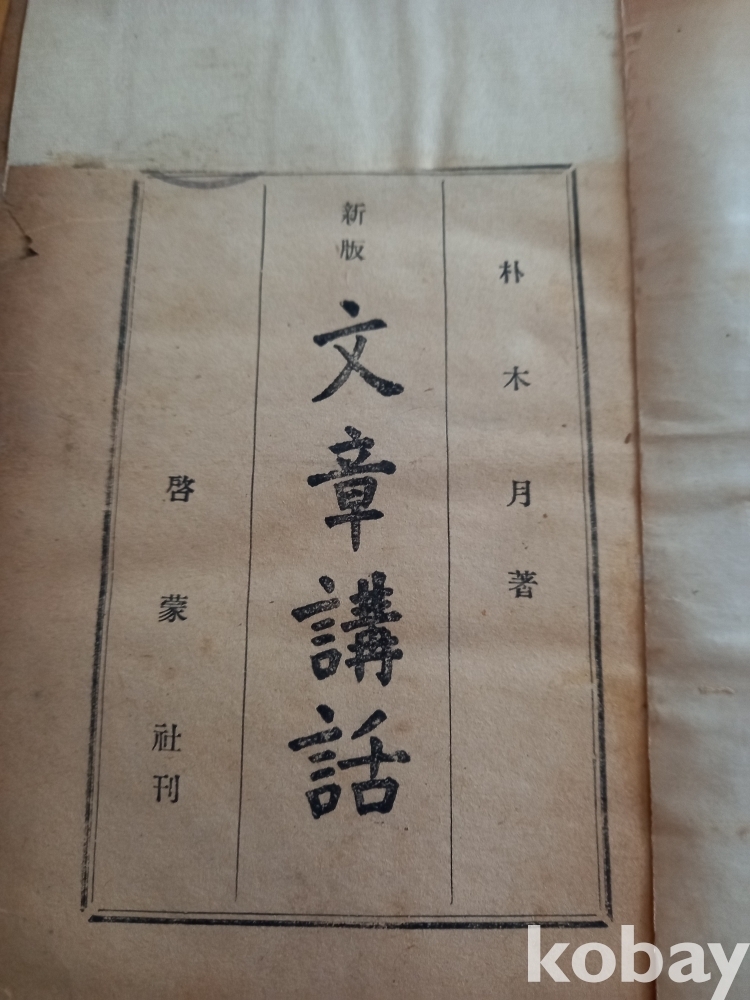 朴木月著
新版 文章講話
啓蒙社刊
kobay